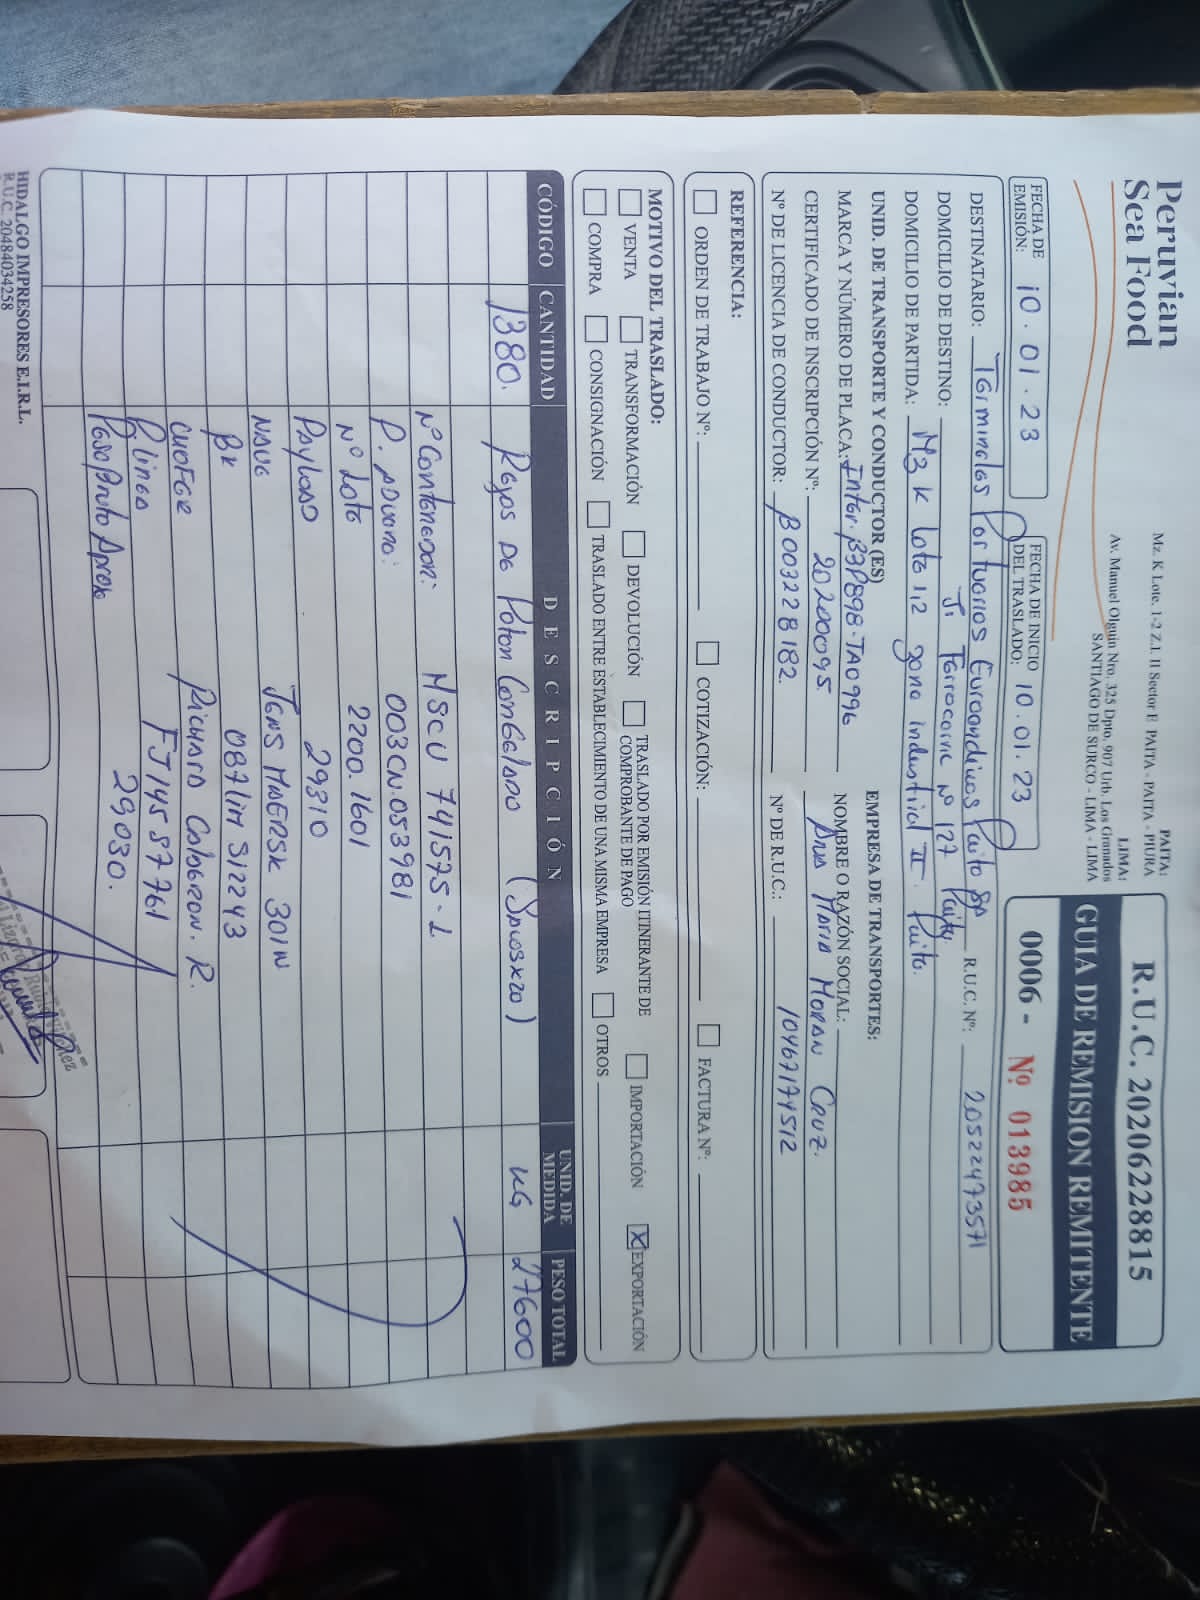 Peruvian
Sea Food
PAITA:
Mz. K Lote. 1-2 Z.I. II Sector F PAITA - PAITA - PIURA
LIMA:
Av. Manuel Olguin Nro. 325 Dpto. 907 Urb. Los Granados
SANTIAGO DE SURCO - LIMA - LIMA
R.U.C. 20206228815
GUIA DE REMISION REMITENTE
0006 - Nº 013985
FECHA DE EMISIÓN: 10.01.23
FECHA DE INICIO DEL TRASLADO: 10.01.23
DESTINATARIO: Terminales Portuarios Euroandinos Paita SA R.U.C. Nº: 20522473571
DOMICILIO DE DESTINO: Jr Ferrocarril Nº 127 Paita
DOMICILIO DE PARTIDA: Mz K Lote 1,2 zona industrial II. Paita.
UNID. DE TRANSPORTE Y CONDUCTOR (ES) EMPRESA DE TRANSPORTES:
MARCA Y NÚMERO DE PLACA: Inter. B3P898-TAO996 NOMBRE O RAZÓN SOCIAL:
CERTIFICADO DE INSCRIPCIÓN Nº: 20200095 Ana Maria Moran Cruz.
Nº DE LICENCIA DE CONDUCTOR: B00322B182. Nº DE R.U.C.: 10467174512
REFERENCIA:
ORDEN DE TRABAJO Nº: COTIZACIÓN: FACTURA Nº:
MOTIVO DEL TRASLADO:
VENTA TRANSFORMACIÓN DEVOLUCIÓN TRASLADO POR EMISIÓN ITINERANTE DE COMPROBANTE DE PAGO IMPORTACIÓN X EXPORTACIÓN
COMPRA CONSIGNACIÓN TRASLADO ENTRE ESTABLECIMIENTO DE UNA MISMA EMPRESA OTROS
CÓDIGO CANTIDAD DESCRIPCIÓN UNID. DE MEDIDA PESO TOTAL
1380. Rejos De Poton Congelado (Sacos x 20) KG 27600
Nº Contenedor: MSCU 741575-2
P. Aduana: 003CN.053981
Nº Lote 2200.1601
Payload 29310
Nave Jens Maersk 301N
BK 087LIM 312243
Chofer Richard Calderon. R.
P. linea FJ14557761
Peso Bruto Aprox 29030.
HIDALGO IMPRESORES E.I.R.L.
R.U.C. 20484034258